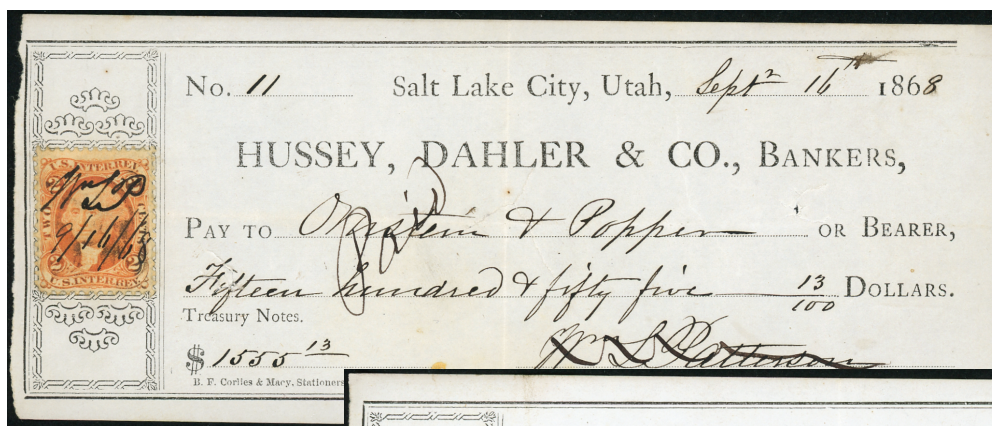 No. 11 Salt Lake City, Utah, Sept 16th 1868
HUSSEY, DAHLER & CO., BANKERS,
PAY TO Ornstein & Popper OR BEARER,
Paid
Fifteen hundred & fifty five 13/100 DOLLARS.
Treasury Notes.
$ 1555 13
Wm S Patterson
B. F. Corlies & Macy, Stationers
U.S. INTER REV.
Wm S P
9/16/68
TWO
2 2
U.S. INTER REV.